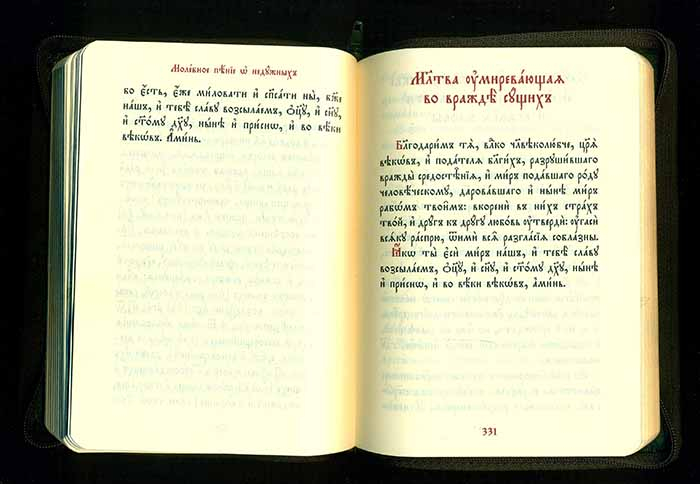 Моле́бное пѣ́нїе ѡ҆ неду́жныхъ
бо є҆́сть, є҆́же ми́ловати и҆ сп҃са́ти ны̀, бж҃е
на́шъ, и҆ тебѣ̀ сла́вꙋ возсыла́емъ, ѻ҆ц҃ꙋ̀, и҆ сн҃ꙋ,
и҆ ст҃о́мꙋ дх҃ꙋ, ны́нѣ и҆ при́снѡ, и҆ во вѣ́ки
вѣкѡ́въ. А҆ми́нь.
Мл҃тва ᲂу҆миреváющая
во враждѣ̀ сꙋ́щихъ
Благодари́мъ тѧ̀, вл҃ко чл҃вѣколю́бче, цр҃ѧ̀
вѣкѡ́въ, и҆ пода́телѧ бл҃ги́хъ, разрꙋши́вшаго
вражды̀ средостѣ́нїѧ, и҆ ми́ръ пода́вшаго ро́дꙋ
человѣ́ческомꙋ, дарова́вшаго и҆ ны́нѣ ми́ръ
рабѡ́мъ твои̑мъ: вкоренѝ въ ни́хъ стра́хъ
тво́й, и҆ дрꙋ́гъ къ дрꙋ́гꙋ любо́вь ᲂу҆твердѝ: ᲂу҆гасѝ
всѧ́кꙋ ра́спрю, ѿимѝ всѧ̑ разгла̑сїѧ собла́зны.
Ꙗ҆́кѡ ты̀ є҆сѝ ми́ръ на́шъ, и҆ тебѣ̀ сла́вꙋ
возсыла́емъ, ѻ҆ц҃ꙋ̀, и҆ сн҃ꙋ, и҆ ст҃о́мꙋ дх҃ꙋ, ны́нѣ
и҆ при́снѡ, и҆ во вѣ́ки вѣкѡ́въ, а҆ми́нь.
331